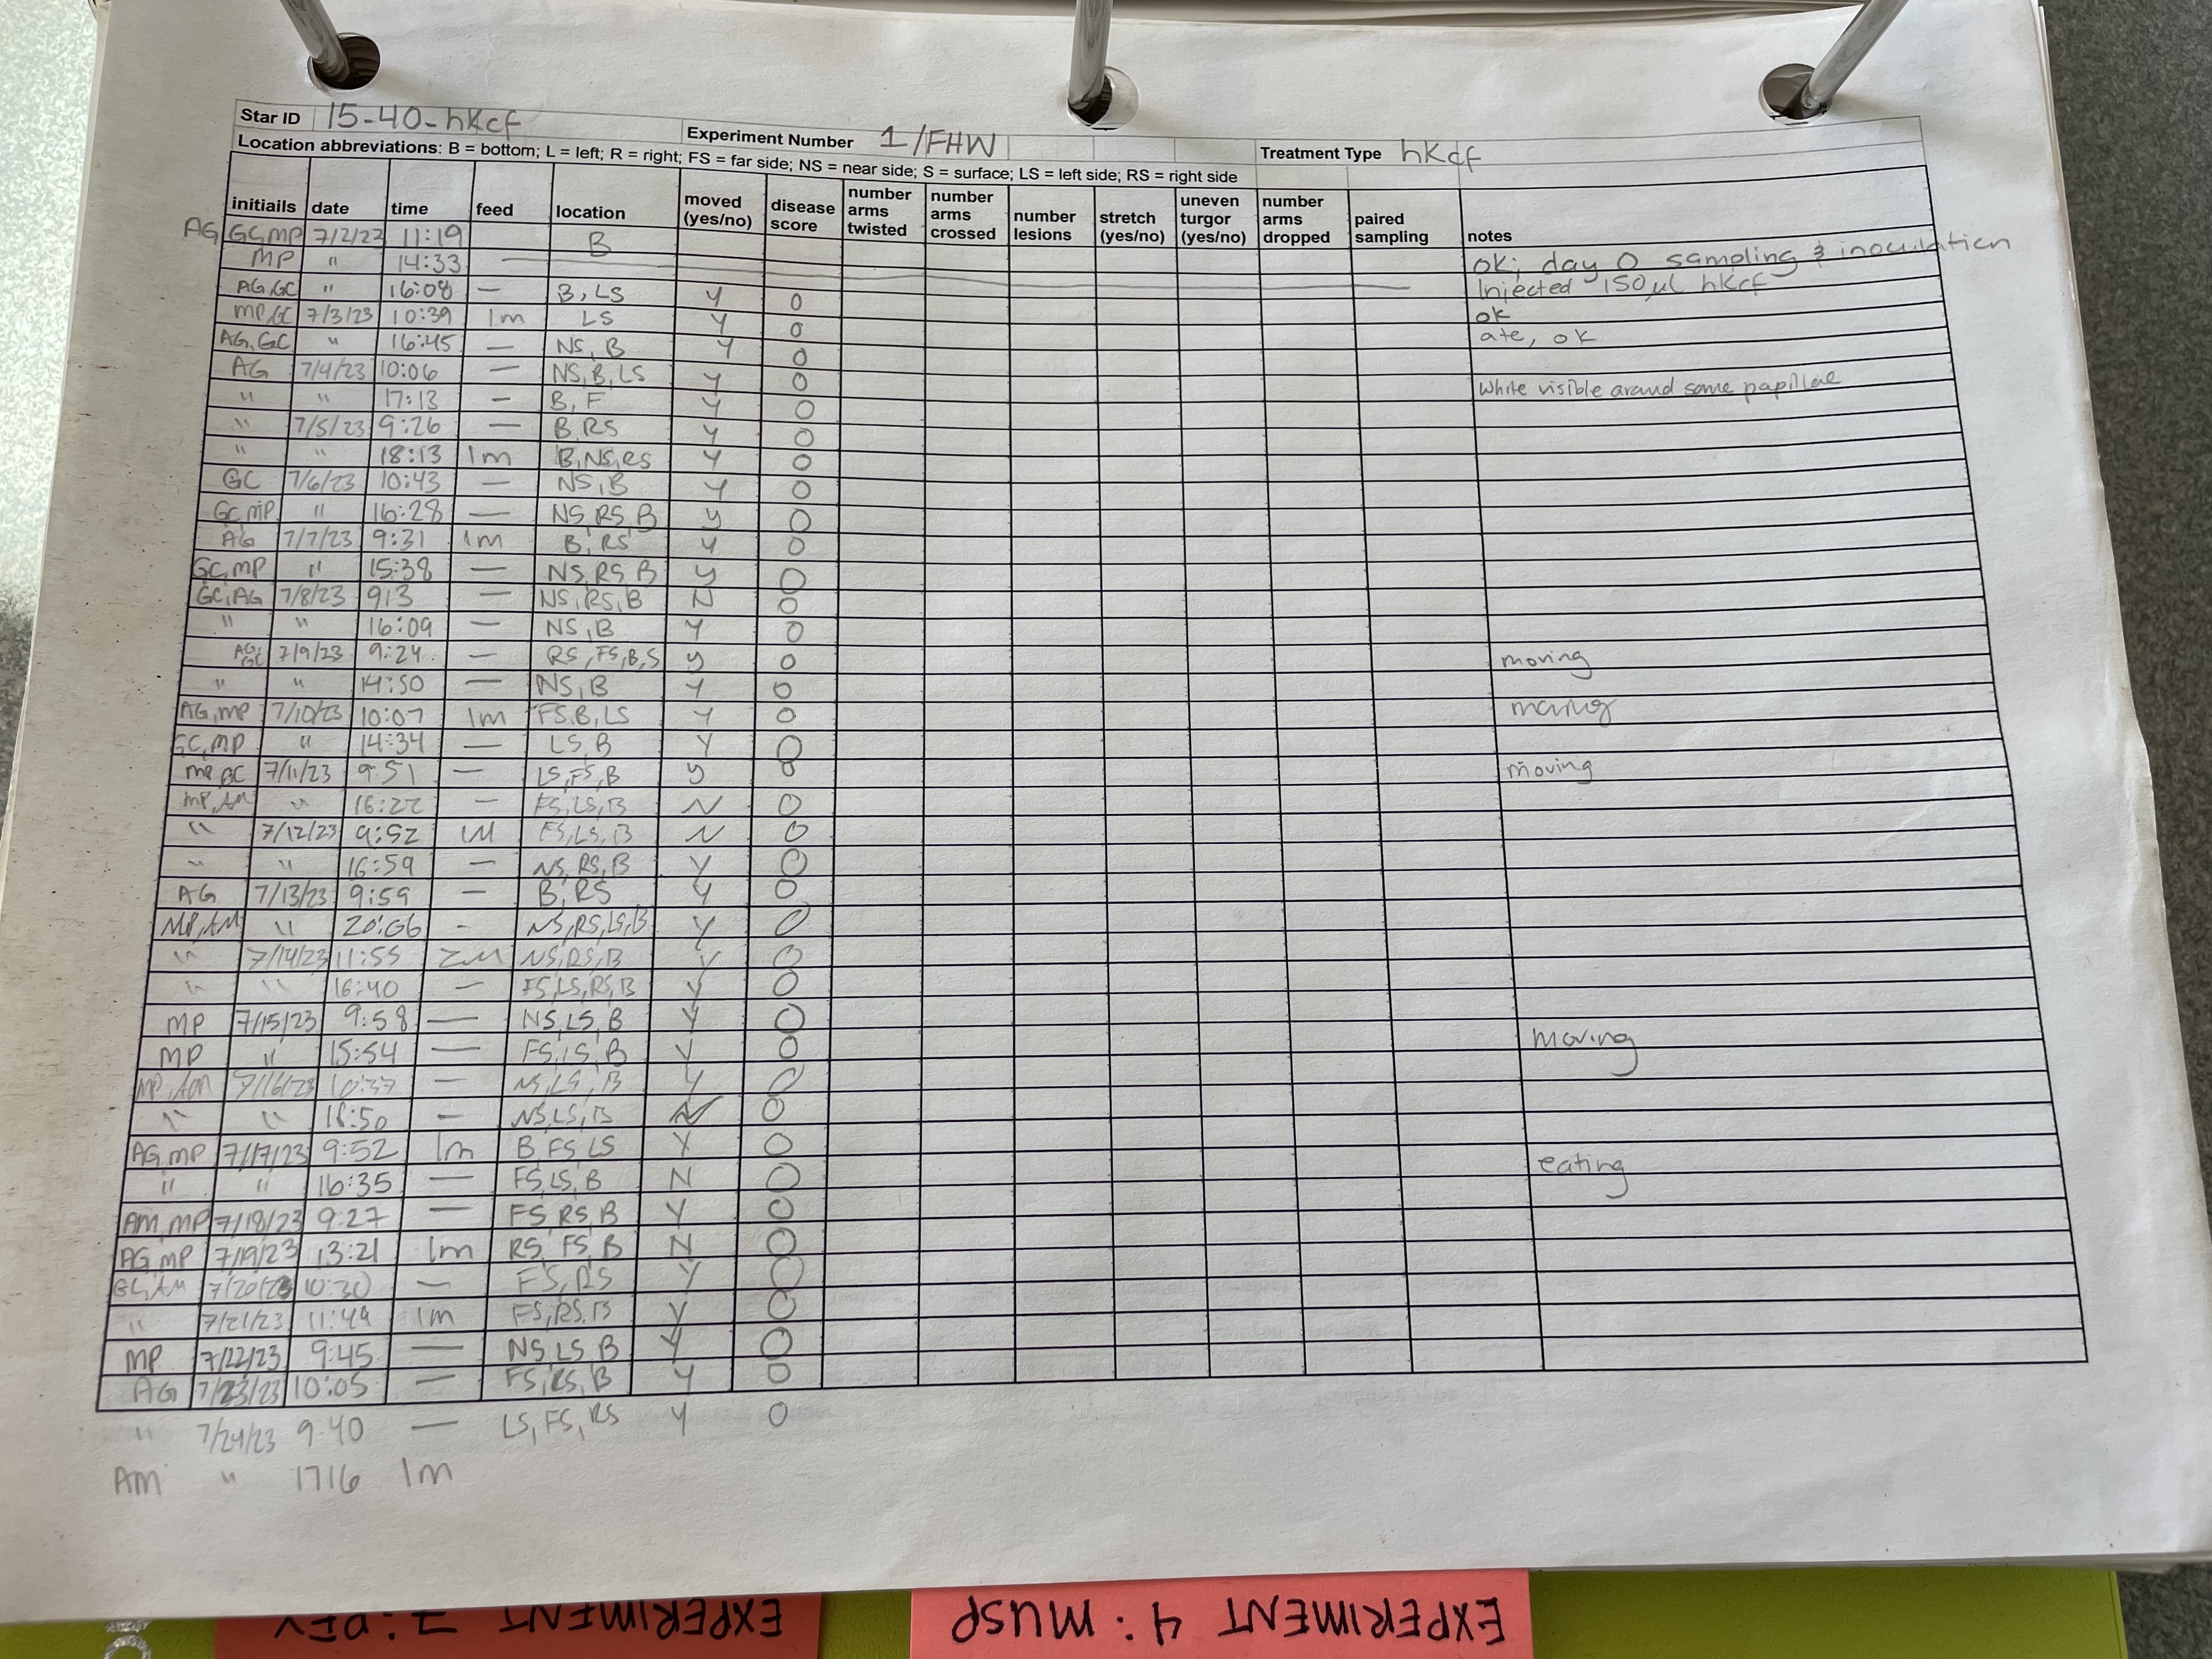 Star ID 15-40-hKcf Experiment Number 1/FHW Treatment Type hKcf
Location abbreviations: B = bottom; L = left; R = right; FS = far side; NS = near side; S = surface; LS = left side; RS = right side
initiails date time feed location moved (yes/no) disease score number arms twisted number arms crossed number lesions stretch (yes/no) uneven turgor (yes/no) number arms dropped paired sampling notes
AG, GC, MP 7/2/23 11:19 B ok; day 0 sampling & inoculation
MP " 14:33 — Injected 150µl hKcf
AG, GC " 16:08 — B, LS Y 0 ok
MP, GC 7/3/23 10:39 1m LS Y 0 ate, ok
AG, GC " 16:45 — NS, B Y 0
AG 7/4/23 10:06 — NS, B, LS Y 0 White visible around some papillae
" " 17:13 — B, F Y 0
" 7/5/23 9:26 — B, RS Y 0
" " 18:13 1m B, NS, RS Y 0
GC 7/6/23 10:43 — NS, B Y 0
GC, MP " 16:28 — NS, RS, B y 0
AG 7/7/23 9:31 1m B, RS Y 0
GC, MP " 15:38 — NS, RS, B y 0
GC, AG 7/8/23 913 — NS, RS, B N 0
" " 16:09 — NS, B Y 0
AG, GC 7/9/23 9:24 — RS, FS, B, S y 0 moving
" " 14:50 — NS, B Y 0
AG, MP 7/10/23 10:07 1m FS, B, LS Y 0 moving
GC, MP " 14:34 — LS, B Y 0
MP, GC 7/11/23 9:51 — LS, FS, B y 0 moving
MP, AM " 16:22 — FS, LS, B N 0
" 7/12/23 9:52 1M FS, LS, B N 0
" " 16:59 — NS, RS, B Y 0
AG 7/13/23 9:59 — B, RS Y 0
MP, AM " 20:06 - NS, RS, LS, B Y 0
" 7/14/23 11:55 2M NS, RS, B Y 0
" " 16:40 — FS, LS, RS, B Y 0
MP 7/15/23 9:58 — NS, LS, B Y 0
MP " 15:54 — FS, LS, B Y 0 moving
MP, AM 7/16/23 10:37 — NS, LS, B Y 0
" " 18:50 — NS, LS, B N 0
AG, MP 7/17/23 9:52 1m B FS, LS Y 0
" " 16:35 — FS, LS, B N 0 eating
AM, MP 7/18/23 9:27 — FS, RS, B Y 0
AG, MP 7/19/23 13:21 1m RS, FS, B N 0
GC, AM 7/20/23 10:30 — FS, RS Y 0
" 7/21/23 11:49 1m FS, RS, B Y 0
MP 7/22/23 9:45 — NS, LS, B Y 0
AG 7/23/23 10:05 — FS, RS, B Y 0
" 7/24/23 9:40 — LS, FS, RS Y 0
AM " 1716 1m
EXPERIMENT
EXPERIMENT 4: MUSP